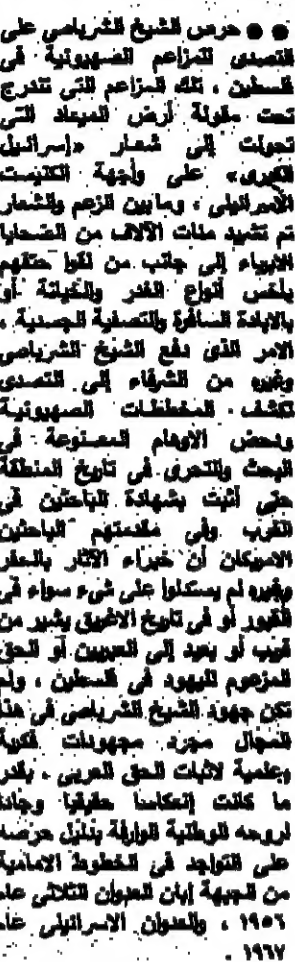 ● ● حرص الشيخ الشرباصى على
التصدى للمزاعم الصهيونية فى
فلسطين ، تلك المزاعم التى تندرج
تحت مقولة أرض الميعاد التى
تحولت إلى شعار «إسرائيل
الكبرى» على واجهة الكنيست
الاسرائيلى ، ومابين الزعم والشعار
تم تشريد مئات الآلاف من الضحايا
الابرياء إلى جانب من لقوا حتفهم
بأخس أنواع الغدر والخيانة أو
بالابادة السافرة والتصفية الجسدية ،
الامر الذى دفع الشيخ الشرباصى
وغيره من الشرفاء إلى التصدى
لكشف المخططات الصهيونية
ودحض الاوهام المصنوعة فى
البحث والتحرى فى تاريخ المنطقة
حتى أثبت بشهادة الباحثين فى
الغرب وفى مقدمتهم الباحثين
الامريكان أن خبراء الآثار بالحفر
وغيره لم يستدلوا على شىء سواء فى
القبور أو فى تاريخ الاغريق يشير من
قريب أو بعيد إلى العبريين أو الحق
المزعوم لليهود فى فلسطين ، ولم
تكن جهود الشيخ الشرباصى فى هذا
المجال مجرد مجهودات فكرية
وعلمية لاثبات الحق العربى ، بقدر
ما كانت إنعكاسا حقيقيا وجادا
لروحه الوطنية الوارفة بدليل حرصه
على التواجد فى الخطوط الامامية
من الجبهة إبان العدوان الثلاثى عام
١٩٥٦ ، والعدوان الاسرائيلى عام
١٩٦٧ .